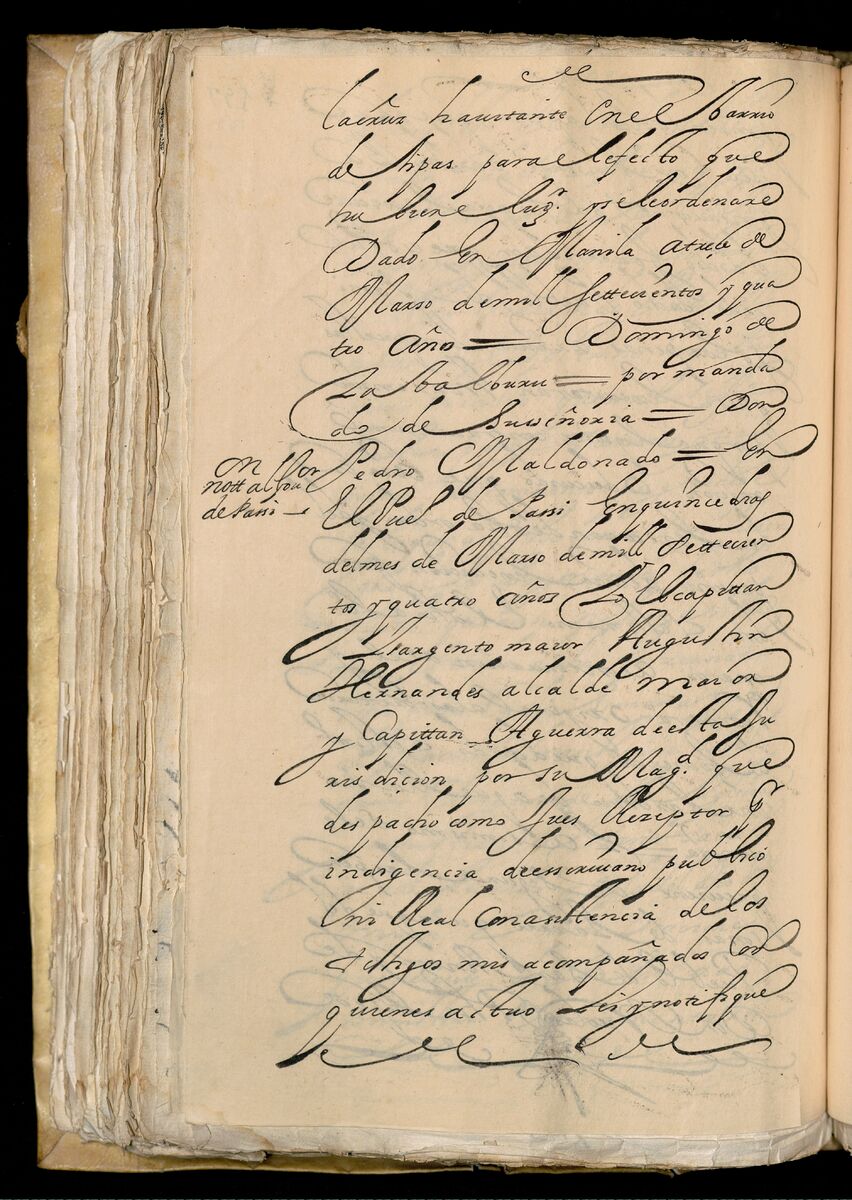 lacruz hauitante en el barrio
de tipas para el efecto que
hubiere lugr. y se le ordenare
Dado en Manila a trece de
Marzo de mill settecientos y qua
tro años = Domingo de
Zabalburu = por manda
do de su señoria = Don
Pedro Maldonado = En
nott al Gou
de Passi
El Puel de Passi en quince dias
del mes de Marzo de mill settecien
tos y quatro años Yo El capittan
Sargento maior Augustin
Hernandes alcalde maior
y Capittan Aguerra de esta Ju
risdicion por su Magd. que
despacho como Jues Rezeptor pr
indigencia de esscriuano publico
ni Real con asistencia de los
testigos mis acompañados con
quienes actuo Lei y notifique